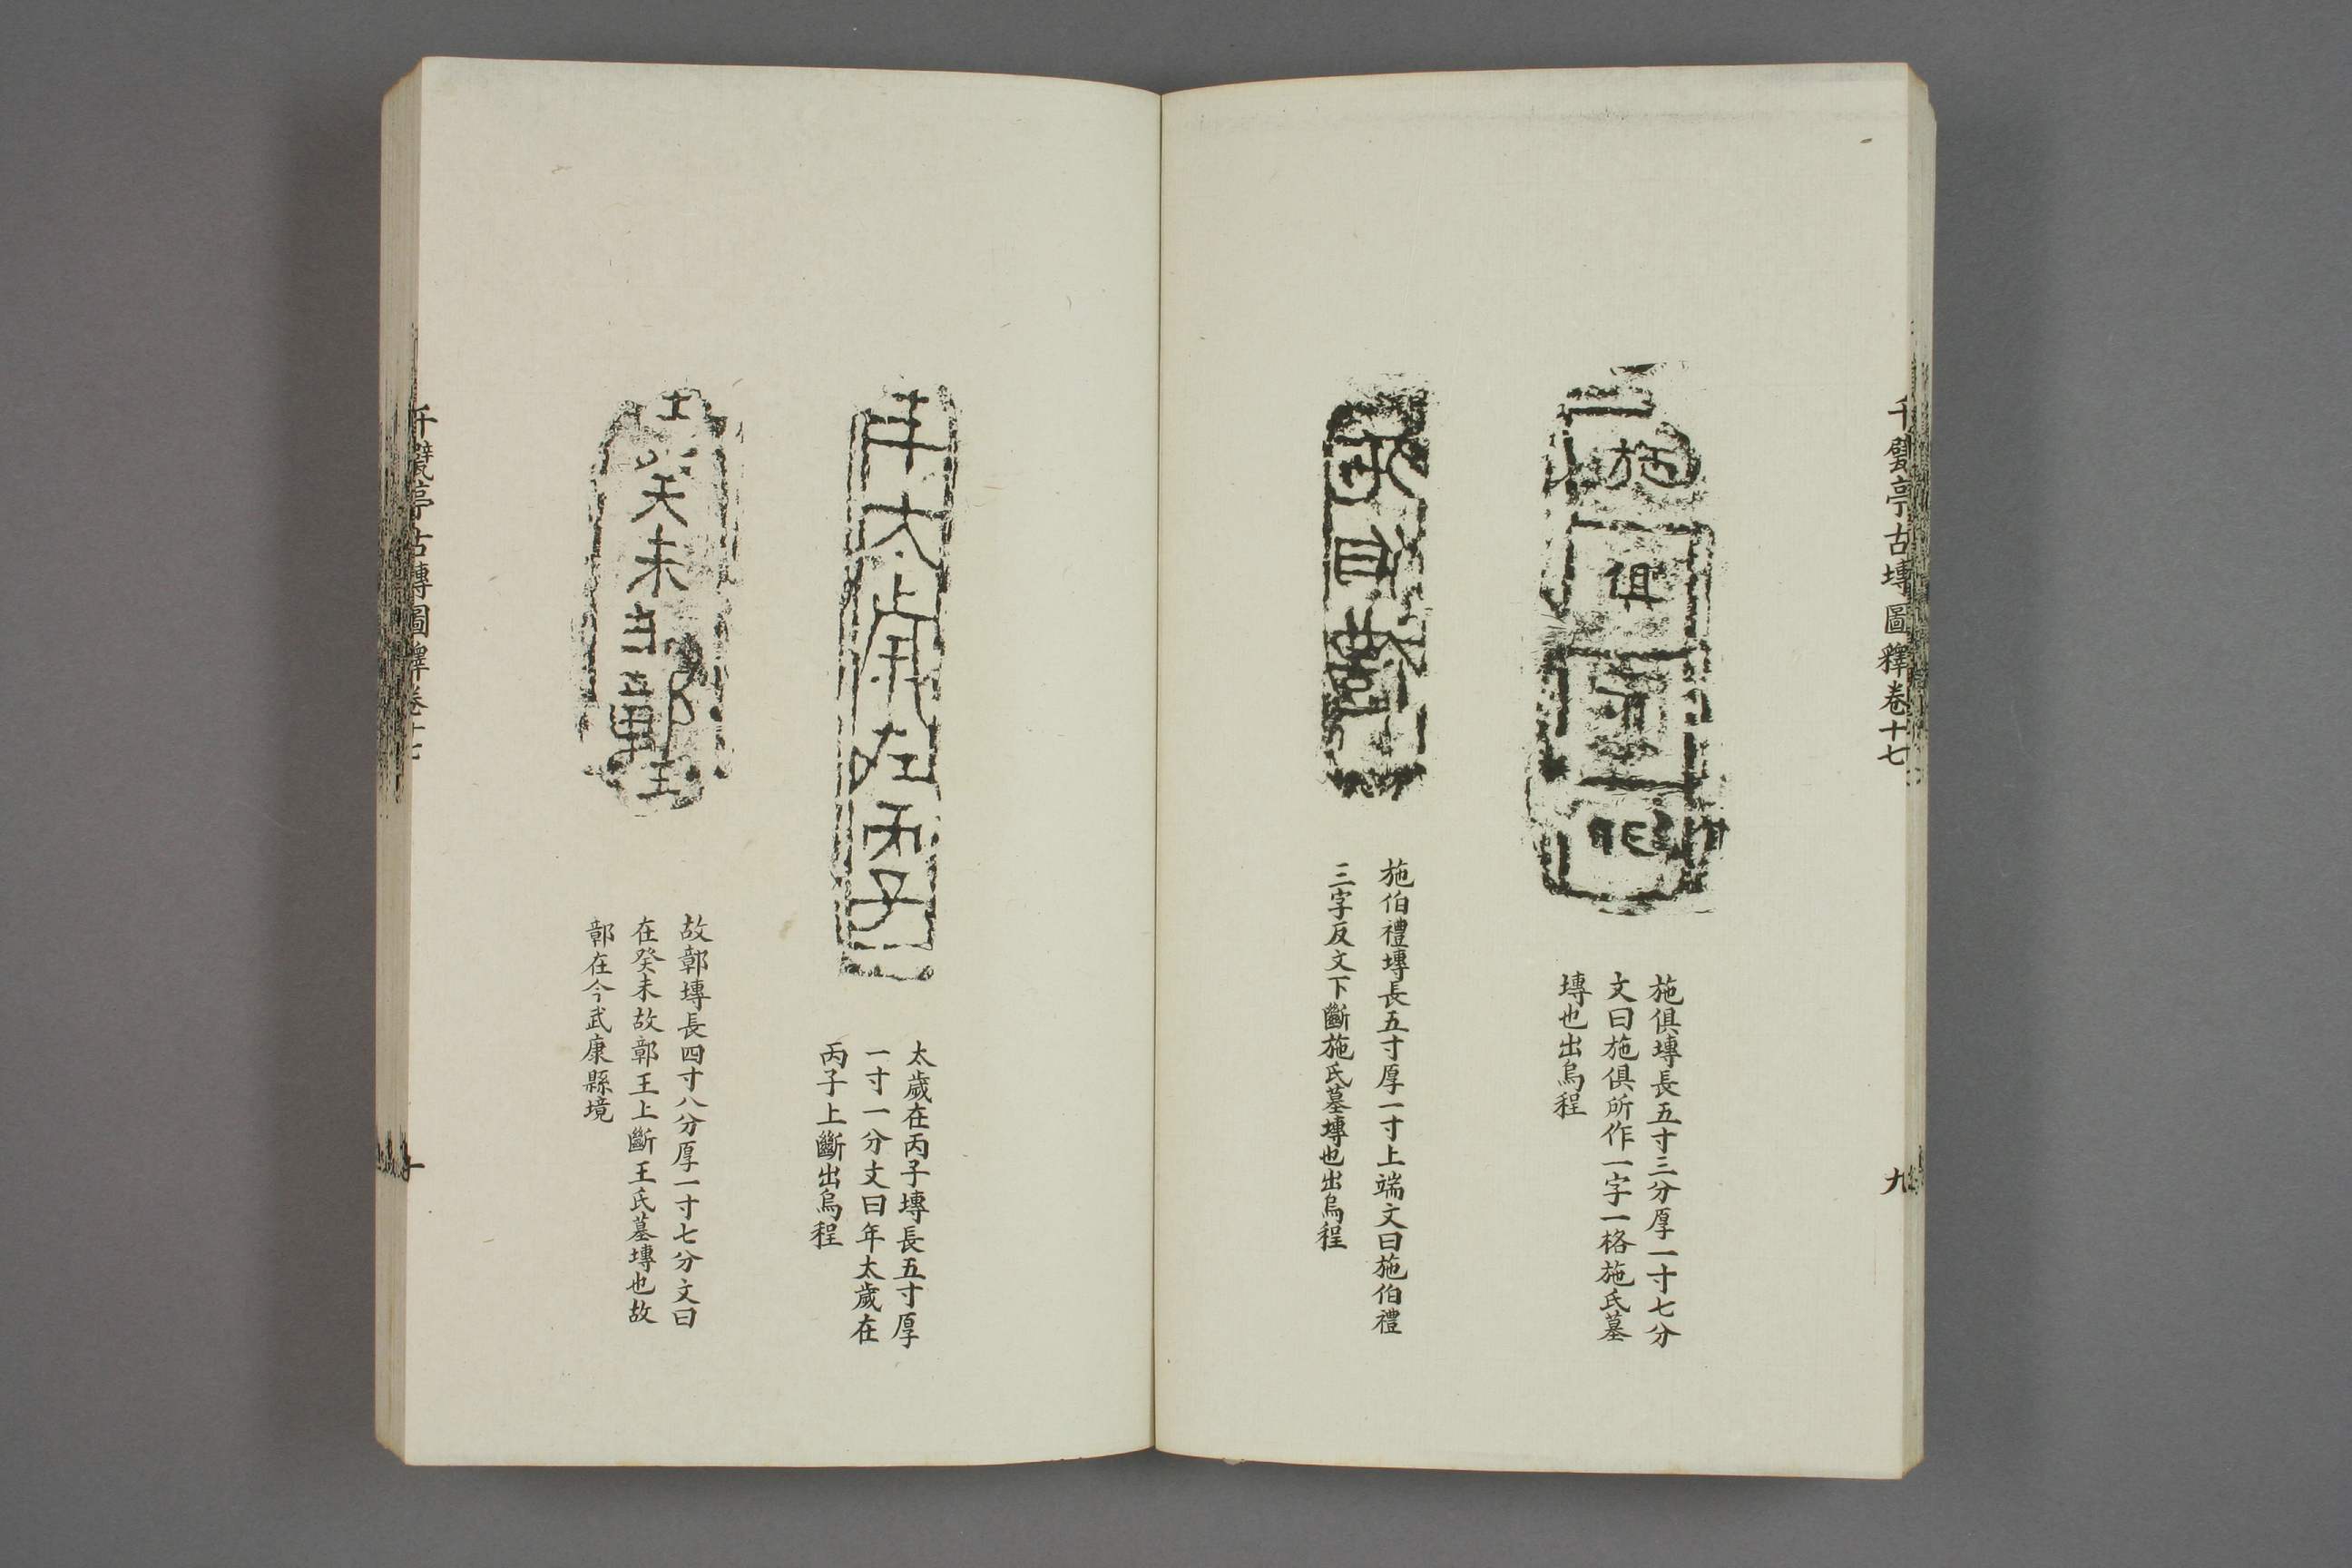 千甓亭古塼圖釋卷十七
九
施俱
施俱塼長五寸三分厚一寸七分
文曰施俱所作一字一格施氏墓
塼也出烏程
施伯禮塼長五寸厚一寸上端文曰施伯禮
三字反文下斷施氏墓塼也出烏程
年太歲在丙子
太歲在丙子塼長五寸厚
一寸一分文曰年太歲在
丙子上斷出烏程
在癸未故鄣王
故鄣塼長四寸八分厚一寸七分文曰
在癸未故鄣王上斷王氏墓塼也故
鄣在今武康縣境
千甓亭古塼圖釋卷十七
十